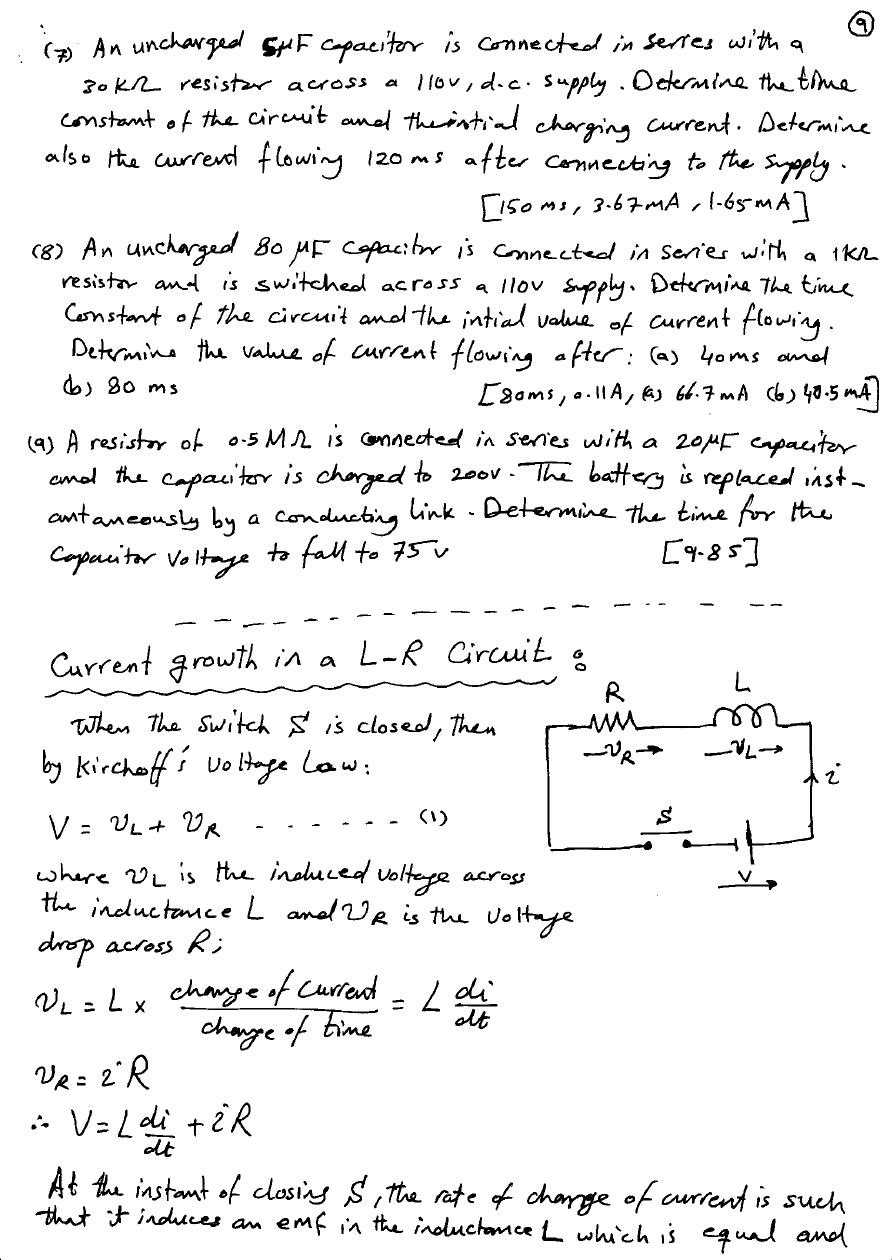 (9)
(7) An uncharged 5μF capacitor is connected in series with a
30kΩ resistor across a 110v, d.c. supply. Determine the time
constant of the circuit and the intial charging current. Determine
also the current flowing 120 ms after connecting to the supply.
[150 ms, 3.67mA, 1.65mA]
(8) An uncharged 80 μF capacitor is connected in series with a 1kΩ
resistor and is switched across a 110v supply. Determine the time
constant of the circuit and the intial value of current flowing.
Determine the value of current flowing after: (a) 40ms and
(b) 80 ms [80ms, 0.11A, (a) 66.7mA (b) 40.5mA]
(9) A resistor of 0.5MΩ is connected in series with a 20μF capacitor
and the capacitor is charged to 200v. The battery is replaced inst-
antaneously by a conducting link. Determine the time for the
capacitor voltage to fall to 75v [9.8s]
Current growth in a L-R Circuit:
When the switch S is closed, then
by Kirchoff's voltage law:
V = vL + vR ------- (1)
where vL is the induced voltage across
the inductance L and vR is the voltage
drop across R;
R L
vR vL
i
S
V
vL = L x change of current / change of time = L di/dt
vR = iR
∴ V = L di/dt + iR
At the instant of closing S, the rate of change of current is such
that it induces an emf in the inductance L which is equal and